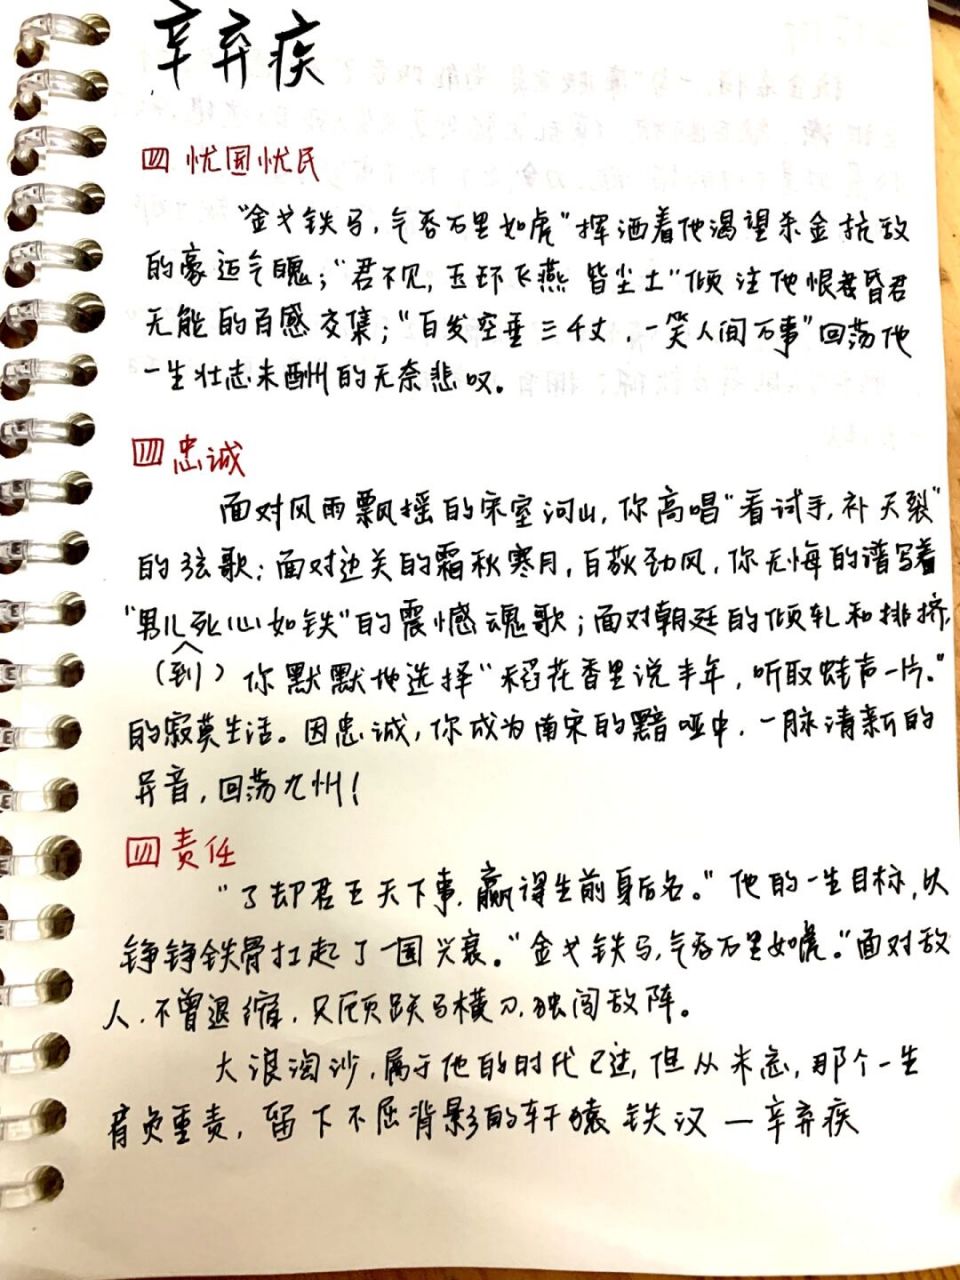 辛弃疾
四 忧国忧民
"金戈铁马,气吞万里如虎"挥洒着他渴望杀金抗敌
的豪迈气魄;"君不见,玉环飞燕 皆尘土"倾注他恨昏君
无能的百感交集;"白发空垂三千丈,一笑人间万事"回荡他
一生壮志未酬的无奈悲叹。
四 忠诚
面对风雨飘摇的宋室河山,你高唱"看试手,补天裂"
的弦歌;面对边关的霜秋寒月,白荻劲风,你无悔的谱写着
"男儿死心如铁"的震憾魂歌;面对朝廷的倾轧和排挤,
(到)你默默地选择"稻花香里说丰年,听取蛙声一片。"
的寂寞生活。因忠诚,你成为南宋的黯哑中,一脉清新的
异音,回荡九州!
四 责任
"了却君王天下事,赢得生前身后名。"他的一生目标,以
铮铮铁骨扛起了一国兴衰。"金戈铁马,气吞万里如虎。"面对敌
人,不曾退缩,只顾跃马横刀,独闯敌阵。
大浪淘沙,属于他的时代已过,但从未忘,那个一生
肩负重责,留下不屈背影的轩辕铁汉—辛弃疾